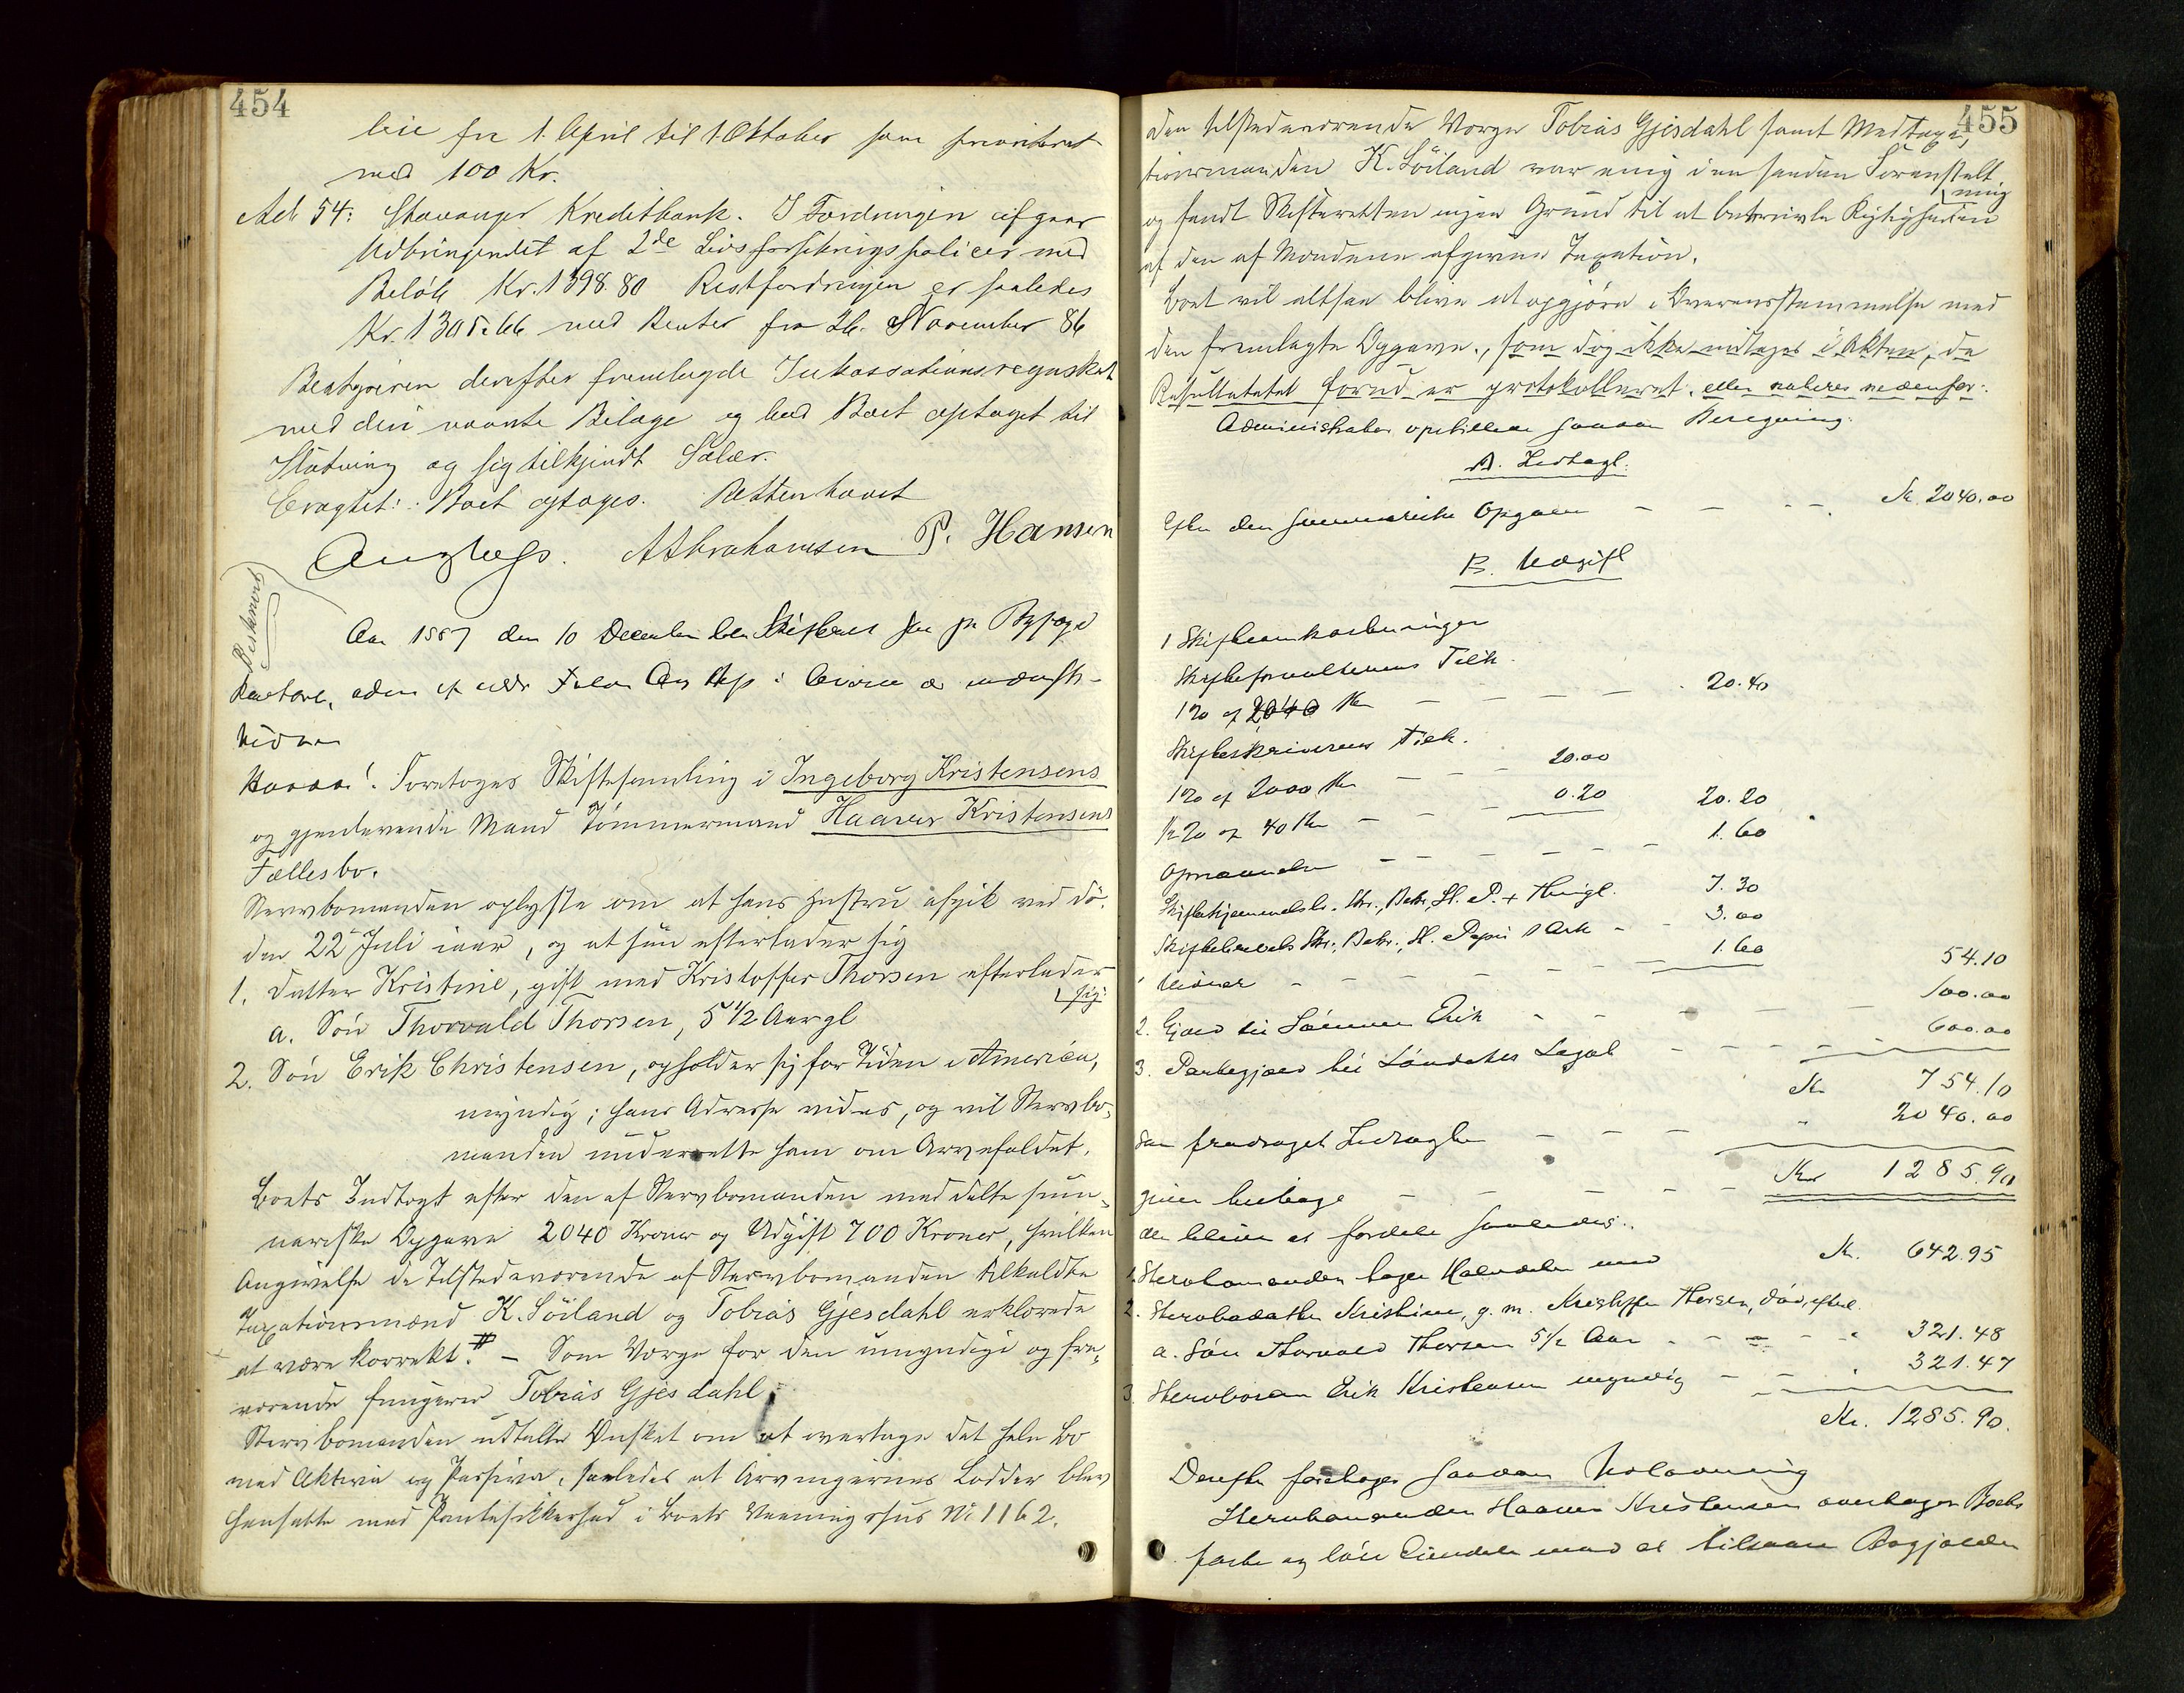 454
leie fra 1. April til 1. Oktober som prioriteret
med 100 Kr.
Ad 54: Stavanger Kreditbank. I Fordringen afgaar
Udbringendet af 2de Livsforsikringspolicer med
Beløb Kr. 1398.80 Restfordringen er saaledes
Kr. 1305.66 med Renter fra 26. November 86
Bestyreren derefter fremlagde Inkassationsregnskab
med den nævnte Bilage og bad Boet optaget til
Slutning og sig tilkjendt Salær.
Eragtet: Boet optages. Retten hævet
A Abrahamsen P. Hansen
Beskrevet
Aar 1887 den 10 December blev Skifteret sat paa Byfoged
Kontoret, af
Vidner
Hvorda! Foretoges Skiftesamling i Ingeborg Kristensens
og gjenlevende Mand Tømmermand Haaver Kristensens
Fællesbo.
Stervbomanden oplyste om at hans Hustru afgik ved Dø-
den 22 Juli iaar, og at hun efterlader sig
1. Datter Kristine, gift med Kristoffer Thorsen efterlader
sig:
a. Søn Thorvald Thorsen, 5 1/2 Aargl
2. Søn Erik Christensen, opholder sig for Tiden i America,
myndig; hans Adresse vides, og vil Stervbo-
manden underrette ham om Arvefaldet.
Boets Indtægt efter den af Stervbomanden meddelte sum-
mariske Opgave 2040 Kroner og Udgift 700 Kroner, hvilken
Angivelse de Tilstedeværende af Stervbomanden tilkaldte
Taxationsmænd K. Söiland og Tobias Gjesdahl erklærede
at være korrekt. # – Som Værge for den umyndige og fra-
værende fungerer Tobias Gjesdahl.
Stervbomanden udtalte Ønsket om at overtage det hele Bo
med Aktiva og Passiva, saaledes at Arvingernes Lodder blev
hensatte med Pantesikkerhed i Boets Vaaningshus No 1162.
455
den tilstedeværende Værge Tobias Gjesdahl samt Medtaxa-
tionsmanden K. Söiland var enig i en saadan Foranstalt
ning
og fandt Skifteretten ingen Grund til at betvivle Rigtigheden
af den af Mændene afgivne Taxation.
Boet vil altsaa blive at opgjøre i Overensstemmelse med
den fremlagte Opgave, som dog ikke indtages i Akten, da
Resultatet forud er protokolleret, eller noteres nedenfor:
Administrator opstillede saadan Beregning:
A. Indtægt:
Efter den summariske Opgave – – – – Kr. 2040.00
B. Udgift
1 Skifteomkostninger
Skifteforvalterens Tilk.
1% af 2040 Kr – – – – 20.40
Skifteskriverens Tilk.
1% af 2000 Kr – – – 20.00
1/2% af 40 Kr – – – 0.20 20.20
Opnævnelse – – – – – – 1.60
Skr., Bekr., St. P. + Thingl. 7.30
Skr., Bekr., St. Papir 1 Ark – – 3.00
Vidner – – – – – – 1.60 54.10
2. Gjæld til Sønnen Erik – – – – 100.00
3. Pantegjæld til Søndates Legat – – – – 600.00
Kr. 754.10
Som fradraget Indtægten – – – " 2040.00
giver tilbage – – – – – Kr 1285.90
der bliver at fordele saaledes:
1. Stervbomanden tager Halvdelen med Kr. 642.95
2. Stervbodatter Kristine, g. m. Kristoffer Thorsen, død, efterl.
a. Søn Thorvald Thorsen 5 1/2 Aar – – – – " 321.48
3. Stervbosøn Erik Kristensen myndig – – " 321.47
Kr. 1285.90.
Derefter foretoges saadan Udlodning
Stervbomanden Haaver Kristensen overtager Boets
faste og løse Eiendele mod at tilsvare Bogjælden